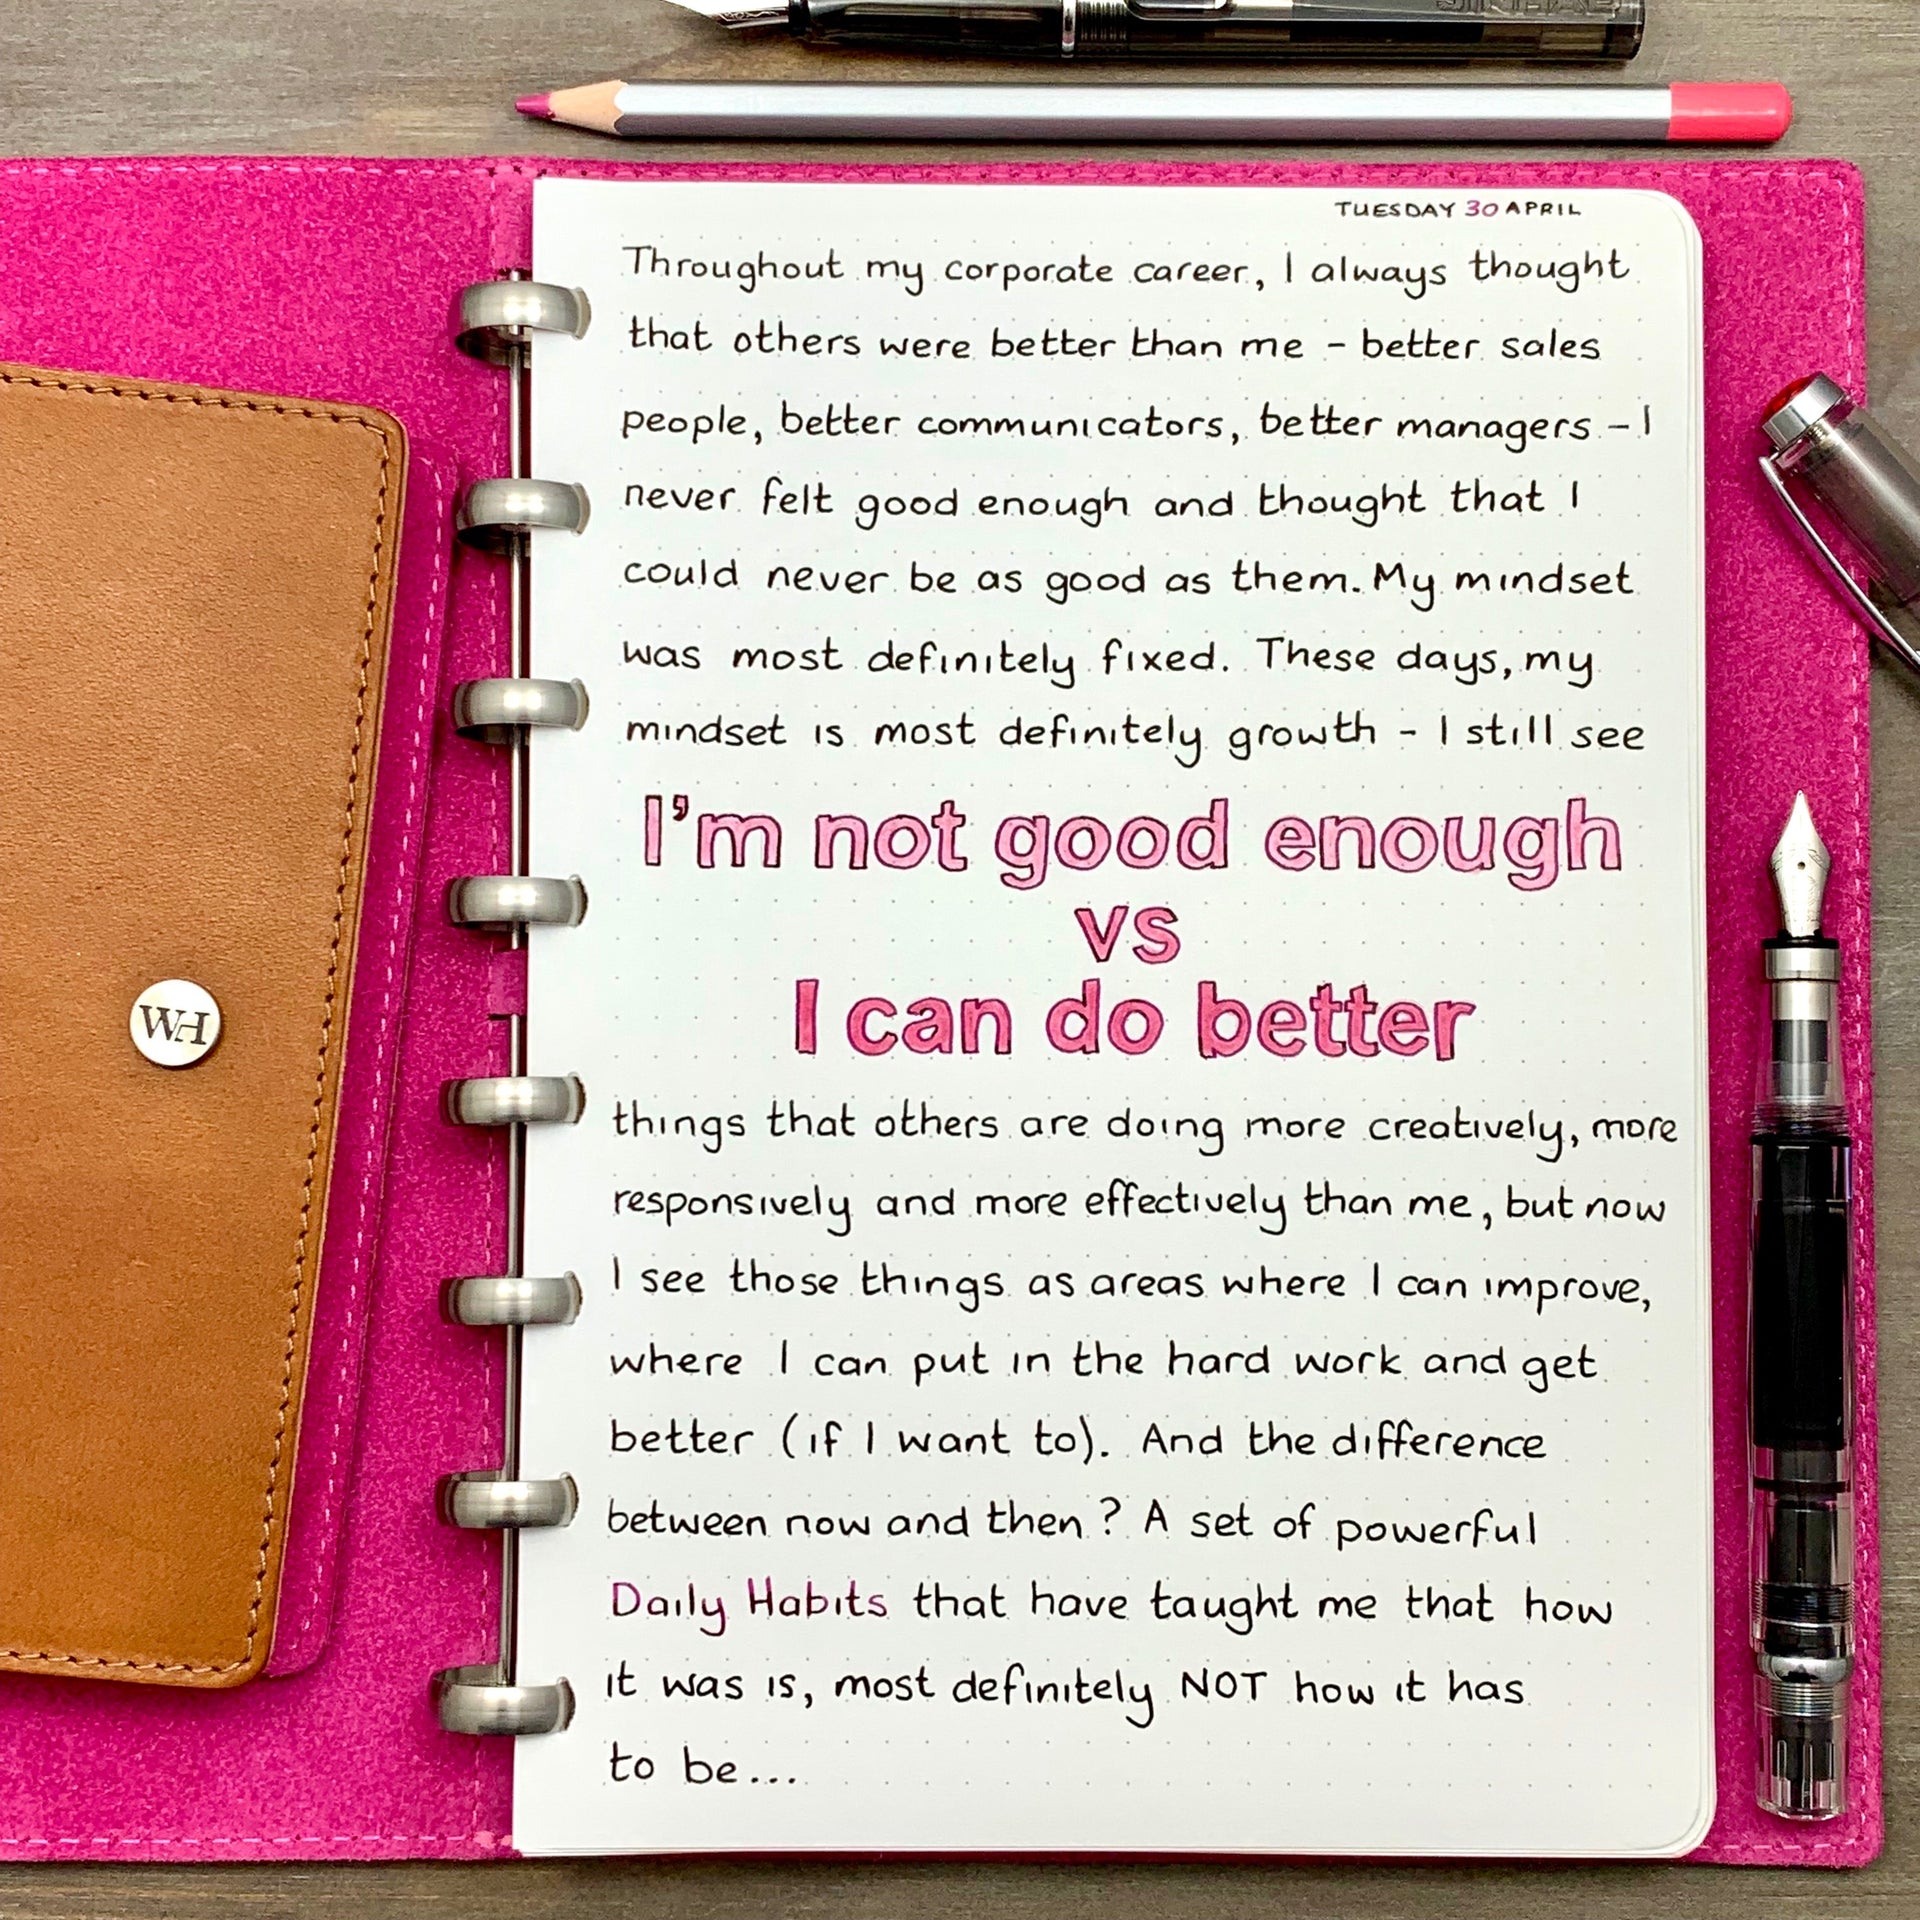 TUESDAY 30 APRIL
Throughout my corporate career, I always thought
that others were better than me - better sales
people, better communicators, better managers - I
never felt good enough and thought that I
could never be as good as them. My mindset
was most definitely fixed. These days, my
mindset is most definitely growth - I still see
I'm not good enough
vs
I can do better
things that others are doing more creatively, more
responsively and more effectively than me, but now
I see those things as areas where I can improve,
where I can put in the hard work and get
better (if I want to). And the difference
between now and then? A set of powerful
Daily Habits that have taught me that how
it was is, most definitely NOT how it has
to be...
WH